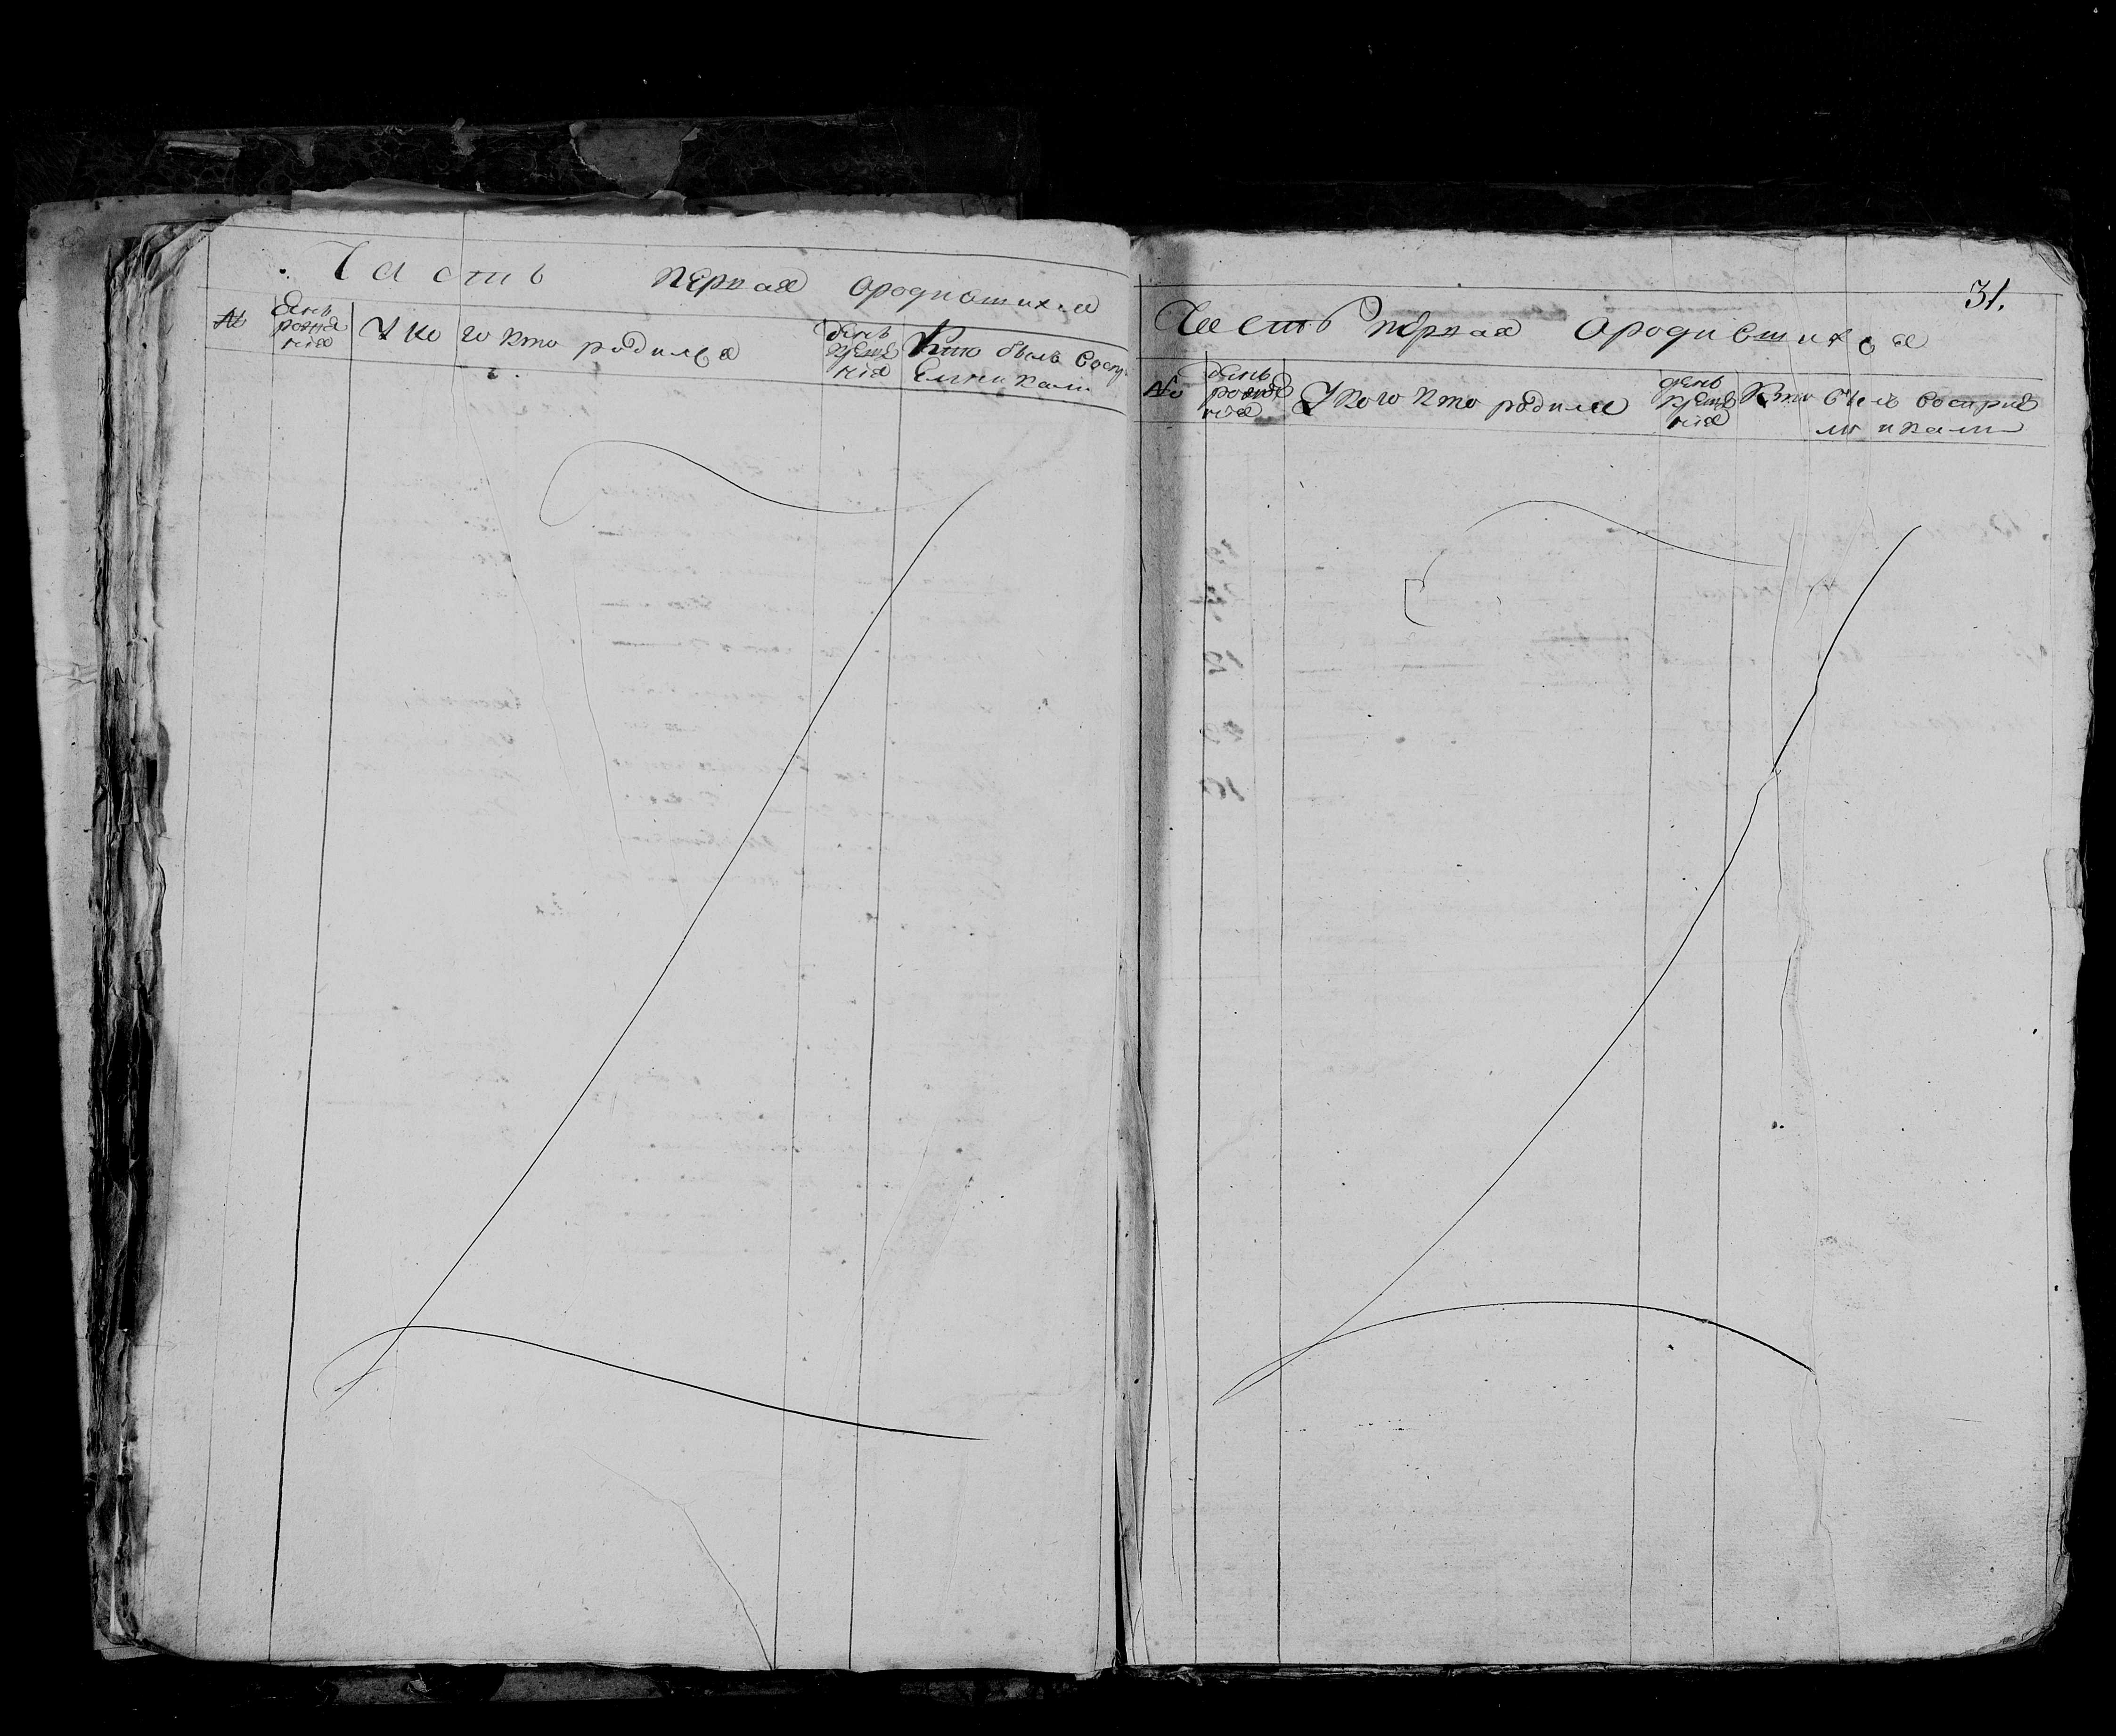 Часть первая ородившихся
№
день рожде нія
У ко го кто родился
день креще нія
Кто былъ воспр
емникам
31.
Часть первая ородившихся
№
день рожде нія
У кого кто родился
день креще нія
Кто былъ воспріе
мниками